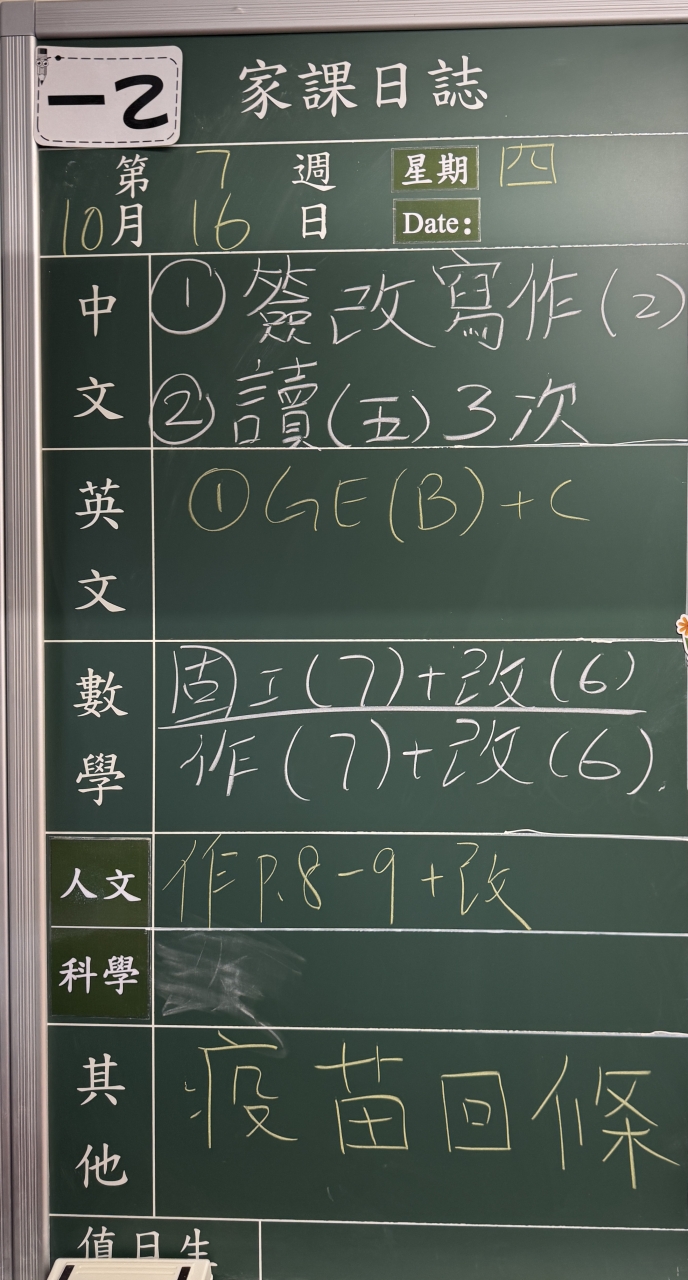 一2
家課日誌
第 7 週 星期 四
10月 16 日 Date:
中文
①簽改寫作(2)
②讀(五)3次
英文
①GE(B)+C
數學
固工(7)+改(6)
作(7)+改(6).
人文
作P.8-9+改
科學
其他
疫苗回條
值日生